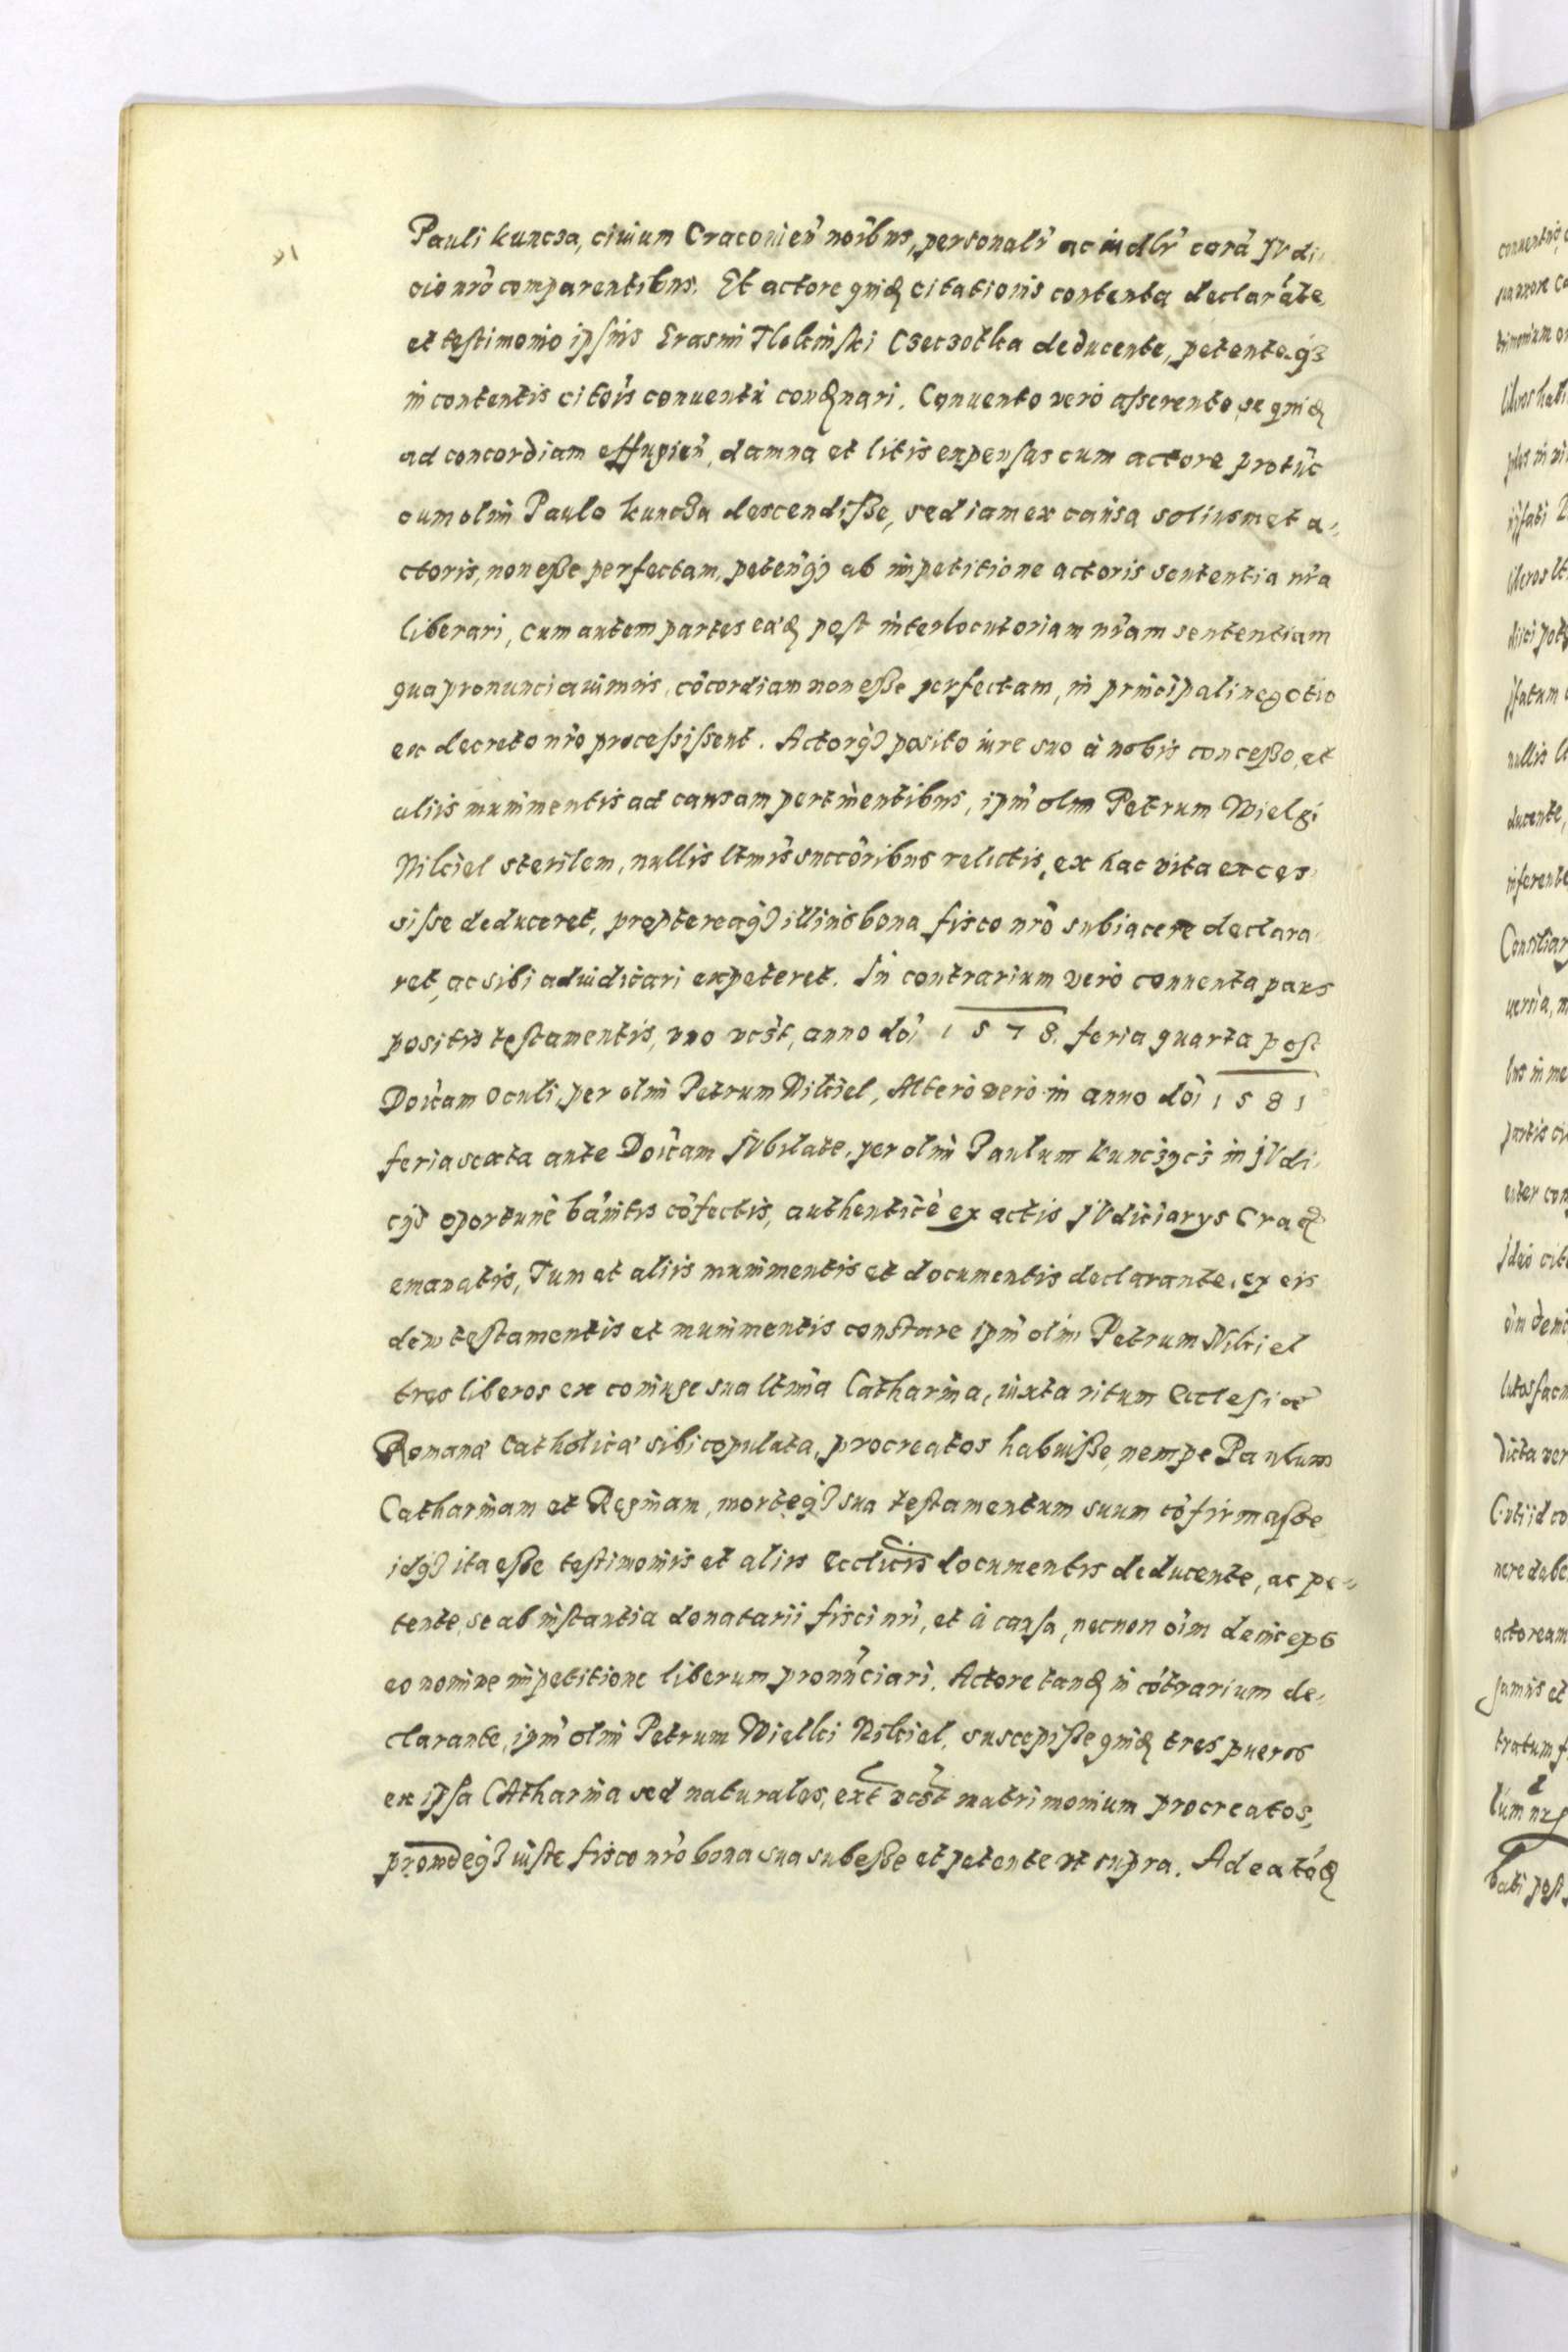 Pauli Kuncza, civium Cracovien̄ noībus, personalr̄ ac iudlr̄ corā JVdi,
cio nr̄o comparentibus. Et actore quid citationis contenta declarāte
et testimonio ipsius Erasmi Tlokinski Czeczotka deducente, petenteq3
in contentis citōis conventū condnari. Convento vero asserente, se quid
ad concordiam effugien̄, damna et litis expensas cum actore protūc
cum olim Paulo Kuncza descendisse, sed iam ex causa soliusmet a,
ctoris, non esse perfectam, peten̄q3 ab impetitione actoris sententia nr̄a
liberari, cum autem partes eaed post interlocutoriam nr̄am sententiam
qua pronunciavimus, cōcordiam non esse perfectam, in principali negotio
ex decreto nr̄o processissent. Actorq3 posito iure suo à nobis concesso, et
aliis munimentis ad causam pertinentibus, ipm̄ olim Petrum Wielgi
Nikiel sterilem, nullis ltmis succōribus relictis, ex hac vita exces
sisse deduceret, proptereaq3 illius bona fisco nr̄o subiacere declara
ret, ac sibi adiudicari expeteret. In contrarium vero conventa pars
positis testamentis, uno vcst, anno dōi 1578. feria quarta post
Doīcam Oculi, per olim Petrum Nikiel, Altero vero in anno dōi 1581
feria sexta ante Doīcam JVbilate, per olim Paulum Kunczycz in JVdi,
cijs oportunè bānitis cōfectis, authenticè ex actis JVdiciarys Crac
emanatis, Tum et aliis munimentis et documentis declarante, ex eis
dem testamentis et munimentis constare ipm̄ olim Petrum Nikiel
tres liberos ex coniuge sua ltma Catharina, iuxta ritum Ecclesiæ
Romanæ Catholicæ sibi copulata, procreatos habuisse, nempe Paulum
Catharinam et Reginam, morteq3 sua testamentum suum cōfirmasse
idq3 ita esse testimoniis et aliis Ecclīcis documentis deducente, ac pe,
tente, se ab instantia donatarii fisci nr̄i, et à causa, necnon oīm deinceps
eo nomine impetitione liberum pronūciari. Actore tand in cōtrarium de,
clarante, ipm̄ olim Petrum Wielki Nikiel, suscepisse quid tres pueros
ex ipsa CAtharina sed naturales, ext vcst matrimonium procreatos,
proindeq3 iuste fisco nr̄o bona sua subesse et petente ut supra. Ad eatōd